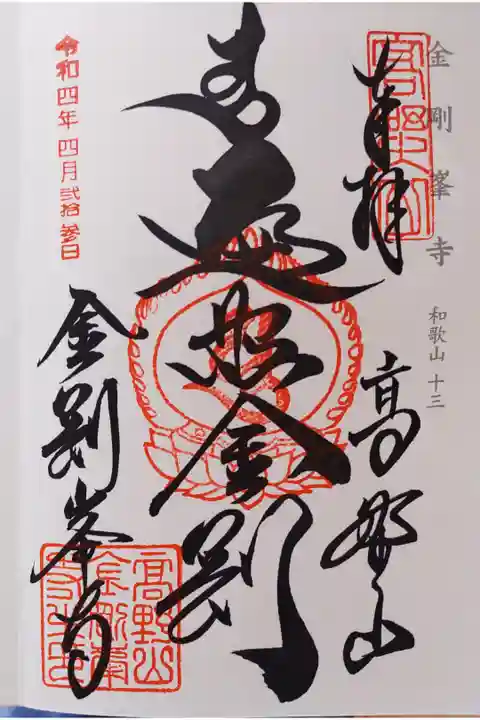 金剛峯寺
和歌山 十三
奉拝
高野山
高野山
遍照金剛
金剛峯寺
高野山
金剛峯
寺之印
令和四年四月弐拾参日